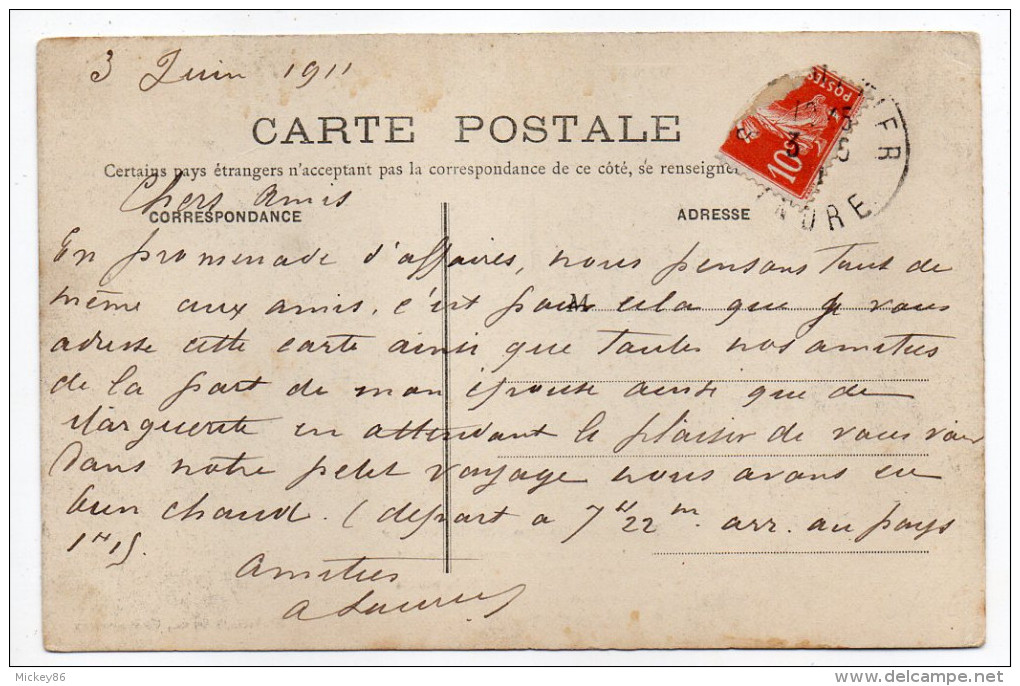 3 Juin 1911
CARTE POSTALE
Certains pays étrangers n'acceptant pas la correspondance de ce côté, se renseigne
Chers Amis
CORRESPONDANCE
ADRESSE
En promenade d'affaires, nous pensons tout de
même aux amis, c'est pour cela que je vous
adresse cette carte ainsi que toutes nos amitiés
de la part de mon épouse ainsi que de
Marguerite en attendant le plaisir de vous voir
Dans notre petit voyage nous avons eu
bien chaud. (départ a 7 H 22 m. arr. au pays
1 H 15.
Amitiés
POSTES
10
INDRE
Mickey86
delcampe.net